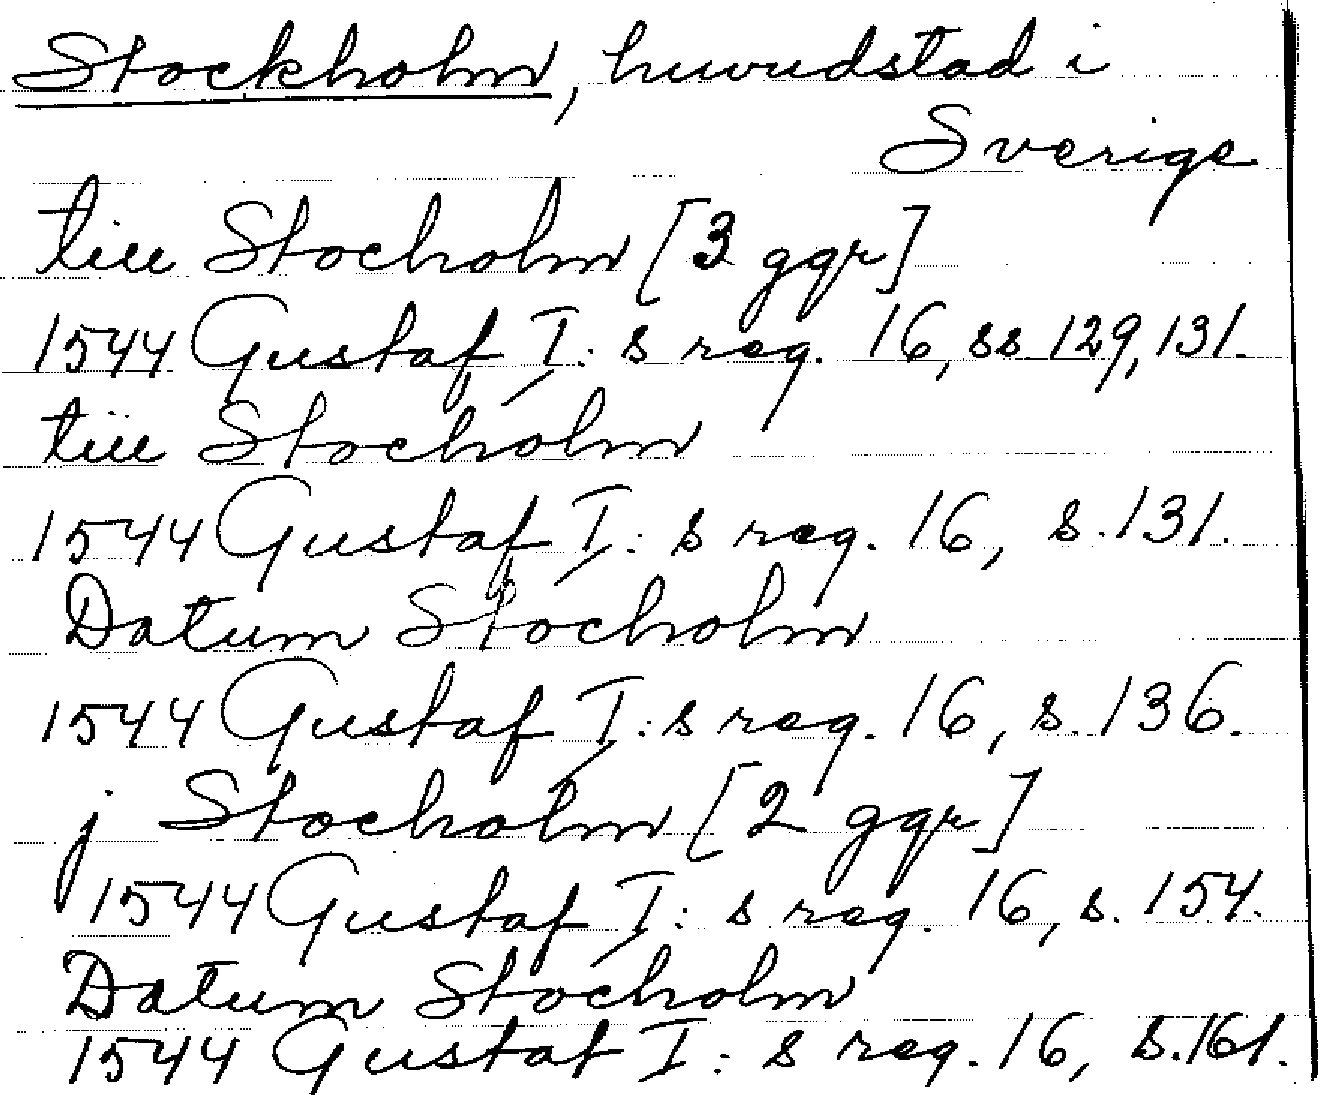 Stockholm, huvudstad i
Sverige
till Stocholm [3 ggr]
1544 Gustaf I: s reg. 16, ss 129, 131.
till Stocholm
1544 Gustaf I: s reg. 16, s. 131.
Datum Stocholm
1544 Gustaf I: s reg. 16, s. 136.
j Stocholm [2 ggr]
1544 Gustaf I: s reg. 16, s. 154.
Datum Stocholm
1544 Gustaf I: s reg. 16, s. 161.